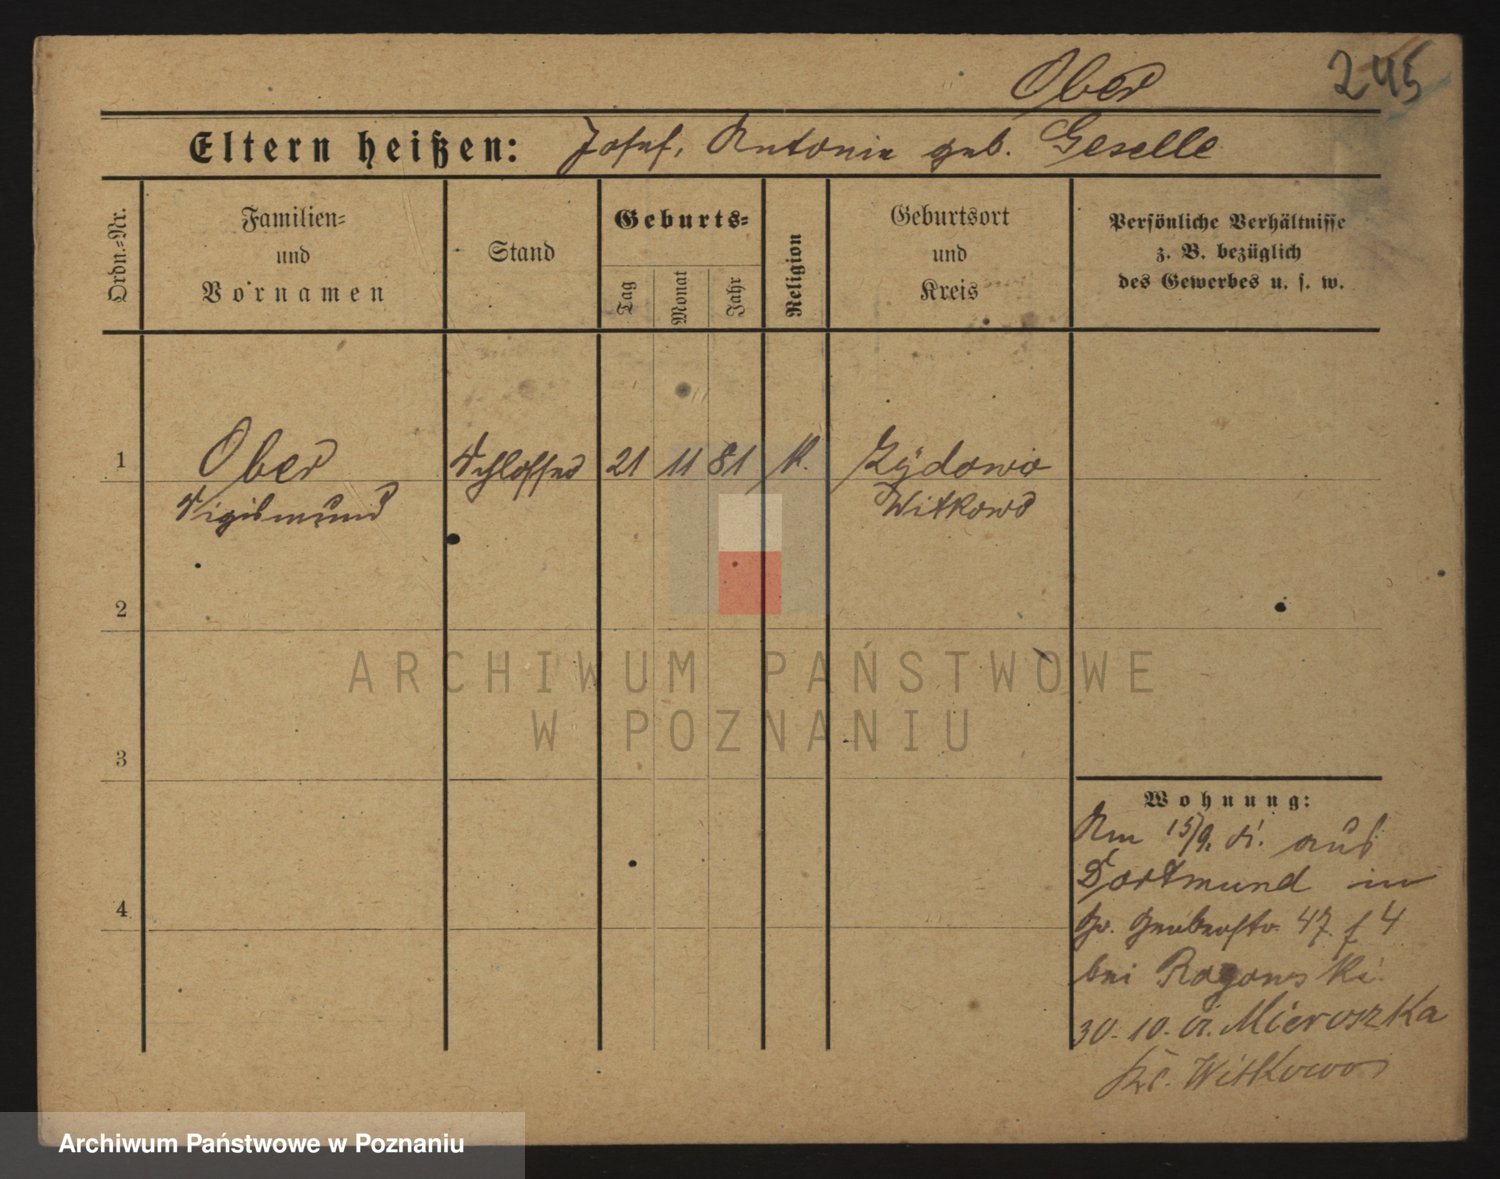 Ober
245
Eltern heißen: Josef, Antonie geb. Geselle
Ordn.-Nr.
Familien-
und
Vornamen
Stand
Geburts-
Tag
Monat
Jahr
Religion
Geburtsort
und
Kreis
Persönliche Verhältnisse
z. B. bezüglich
des Gewerbes u. s. w.
1
Ober
Sigismund
Schlosser
21
11
81
K.
Zydowo
Witkowo
2
ARCHIWUM PAŃSTWOWE
W POZNANIU
3
Wohnung:
Am 15/9. aus
Dortmund in
Gr. Gerberstr. 47
bei Rogowski.
4
30. 10. Mieroszka
Kr. Witkowo
Archiwum Państwowe w Poznaniu